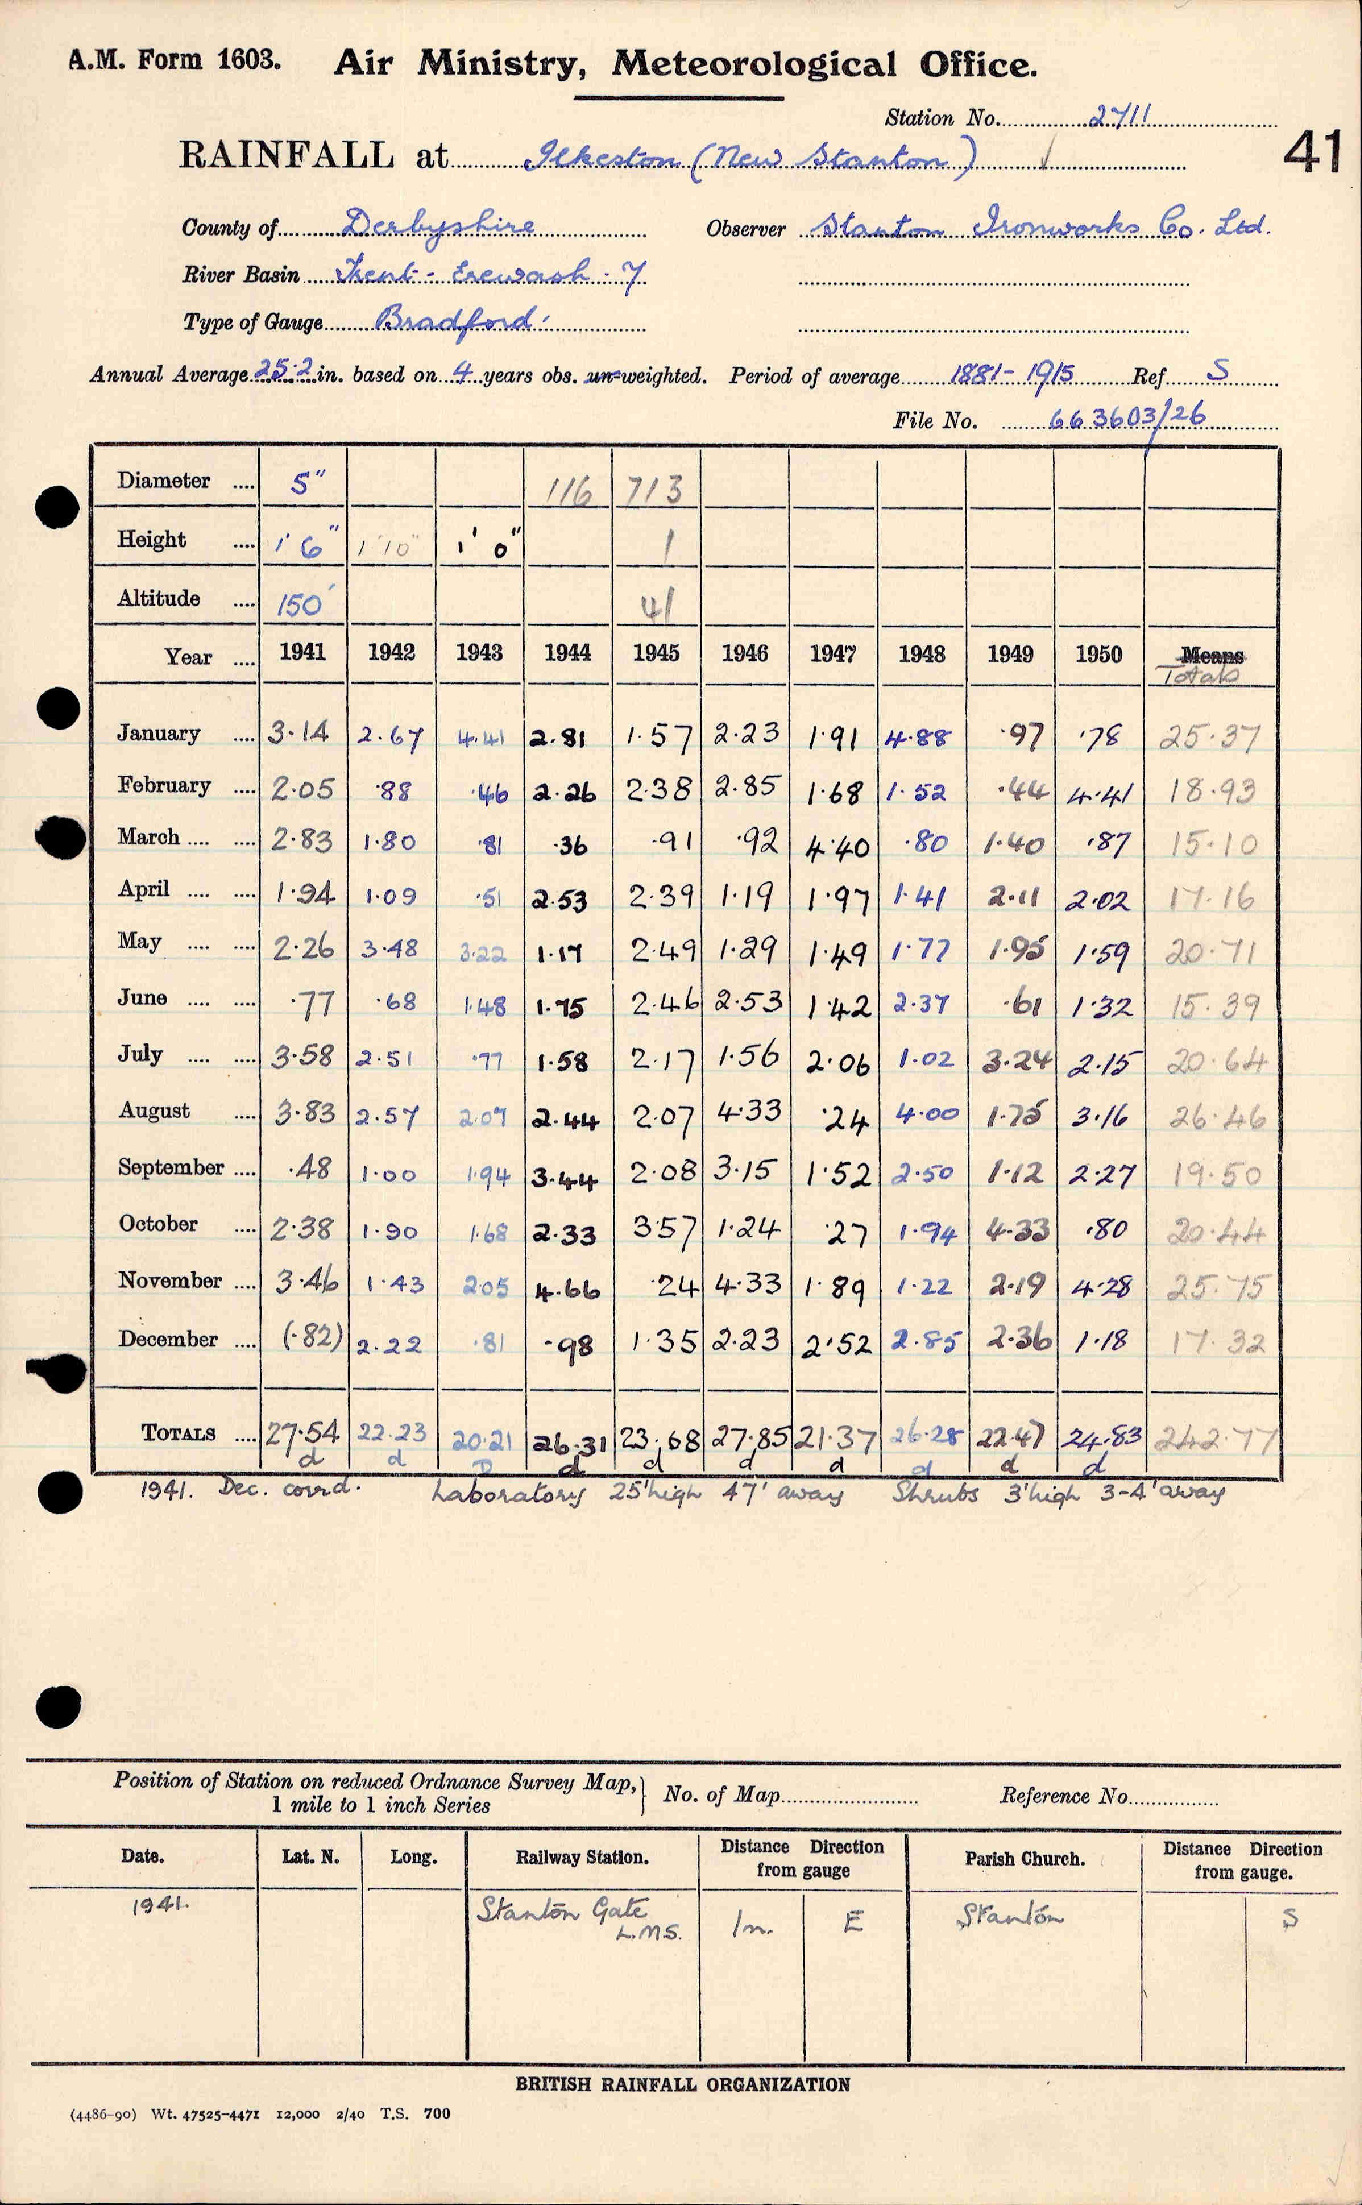 A.M. Form 1603. Air Ministry, Meteorological Office.
Station No. 2711
RAINFALL at Ilkeston (New Stanton) ✓ 41
County of Derbyshire Observer Stanton Ironworks Co. Ltd.
River Basin Trent - Erewash - 7
Type of Gauge Bradford.
Annual Average 25.2 in. based on 4 years obs. un-weighted. Period of average 1881-1915 Ref S
File No. 663603/26
Diameter .... 5" 116 713
Height .... 1'6" 1'10" 1'0" 1
Altitude .... 150' 41
Year .... 1941 1942 1943 1944 1945 1946 1947 1948 1949 1950 Means
Totals
January .... 3.14 2.67 4.41 2.81 1.57 2.23 1.91 4.88 .97 .78 25.37
February .... 2.05 .88 .46 2.26 2.38 2.85 1.68 1.52 .44 4.41 18.93
March .... .... 2.83 1.80 .81 .36 .91 .92 4.40 .80 1.40 .87 15.10
April .... .... 1.94 1.09 .51 2.53 2.39 1.19 1.97 1.41 2.11 2.02 17.16
May .... .... 2.26 3.48 3.22 1.17 2.49 1.29 1.49 1.77 1.95 1.59 20.71
June .... .... .77 .68 1.48 1.75 2.46 2.53 1.42 2.37 .61 1.32 15.39
July .... .... 3.58 2.51 .77 1.58 2.17 1.56 2.06 1.02 3.24 2.15 20.64
August .... 3.83 2.57 2.07 2.44 2.07 4.33 .24 4.00 1.75 3.16 26.46
September .... .48 1.00 1.94 3.44 2.08 3.15 1.52 2.50 1.12 2.27 19.50
October .... 2.38 1.90 1.68 2.33 3.57 1.24 .27 1.94 4.33 .80 20.44
November .... 3.46 1.43 2.05 4.66 .24 4.33 1.89 1.22 2.19 4.28 25.75
December .... (.82) 2.22 .81 .98 1.35 2.23 2.52 2.85 2.36 1.18 17.32
TOTALS .... 27.54 22.23 20.21 26.31 23.68 27.85 21.37 26.28 22.47 24.83 242.77
d d D d d d d d d d
1941. Dec. corrd. Laboratory 25' high 47' away Shrubs 3' high 3-4' away
Position of Station on reduced Ordnance Survey Map, } No. of Map Reference No.
1 mile to 1 inch Series
Date. Lat. N. Long. Railway Station. Distance Direction from gauge Parish Church. Distance Direction from gauge.
1941. Stanton Gate 1m. E Stanton S
L.M.S.
BRITISH RAINFALL ORGANIZATION
(4486-90) Wt. 47525-4471 12,000 2/40 T.S. 700